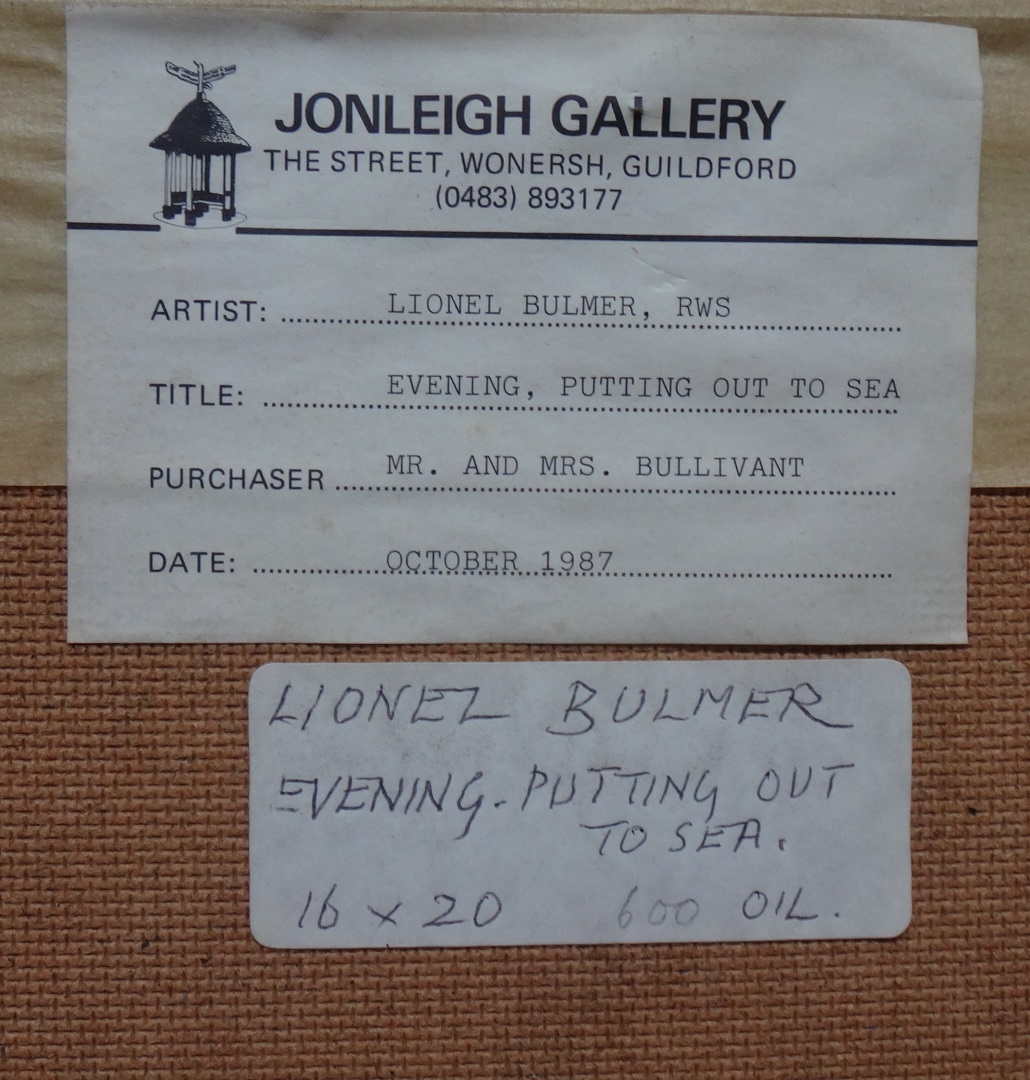 JONLEIGH GALLERY
THE STREET, WONERSH, GUILDFORD
(0483) 893177
ARTIST: LIONEL BULMER, RWS
TITLE: EVENING, PUTTING OUT TO SEA
PURCHASER MR. AND MRS. BULLIVANT
DATE: OCTOBER 1987
LIONEL BULMER
EVENING. PUTTING OUT
TO SEA.
16 x 20 600 OIL.